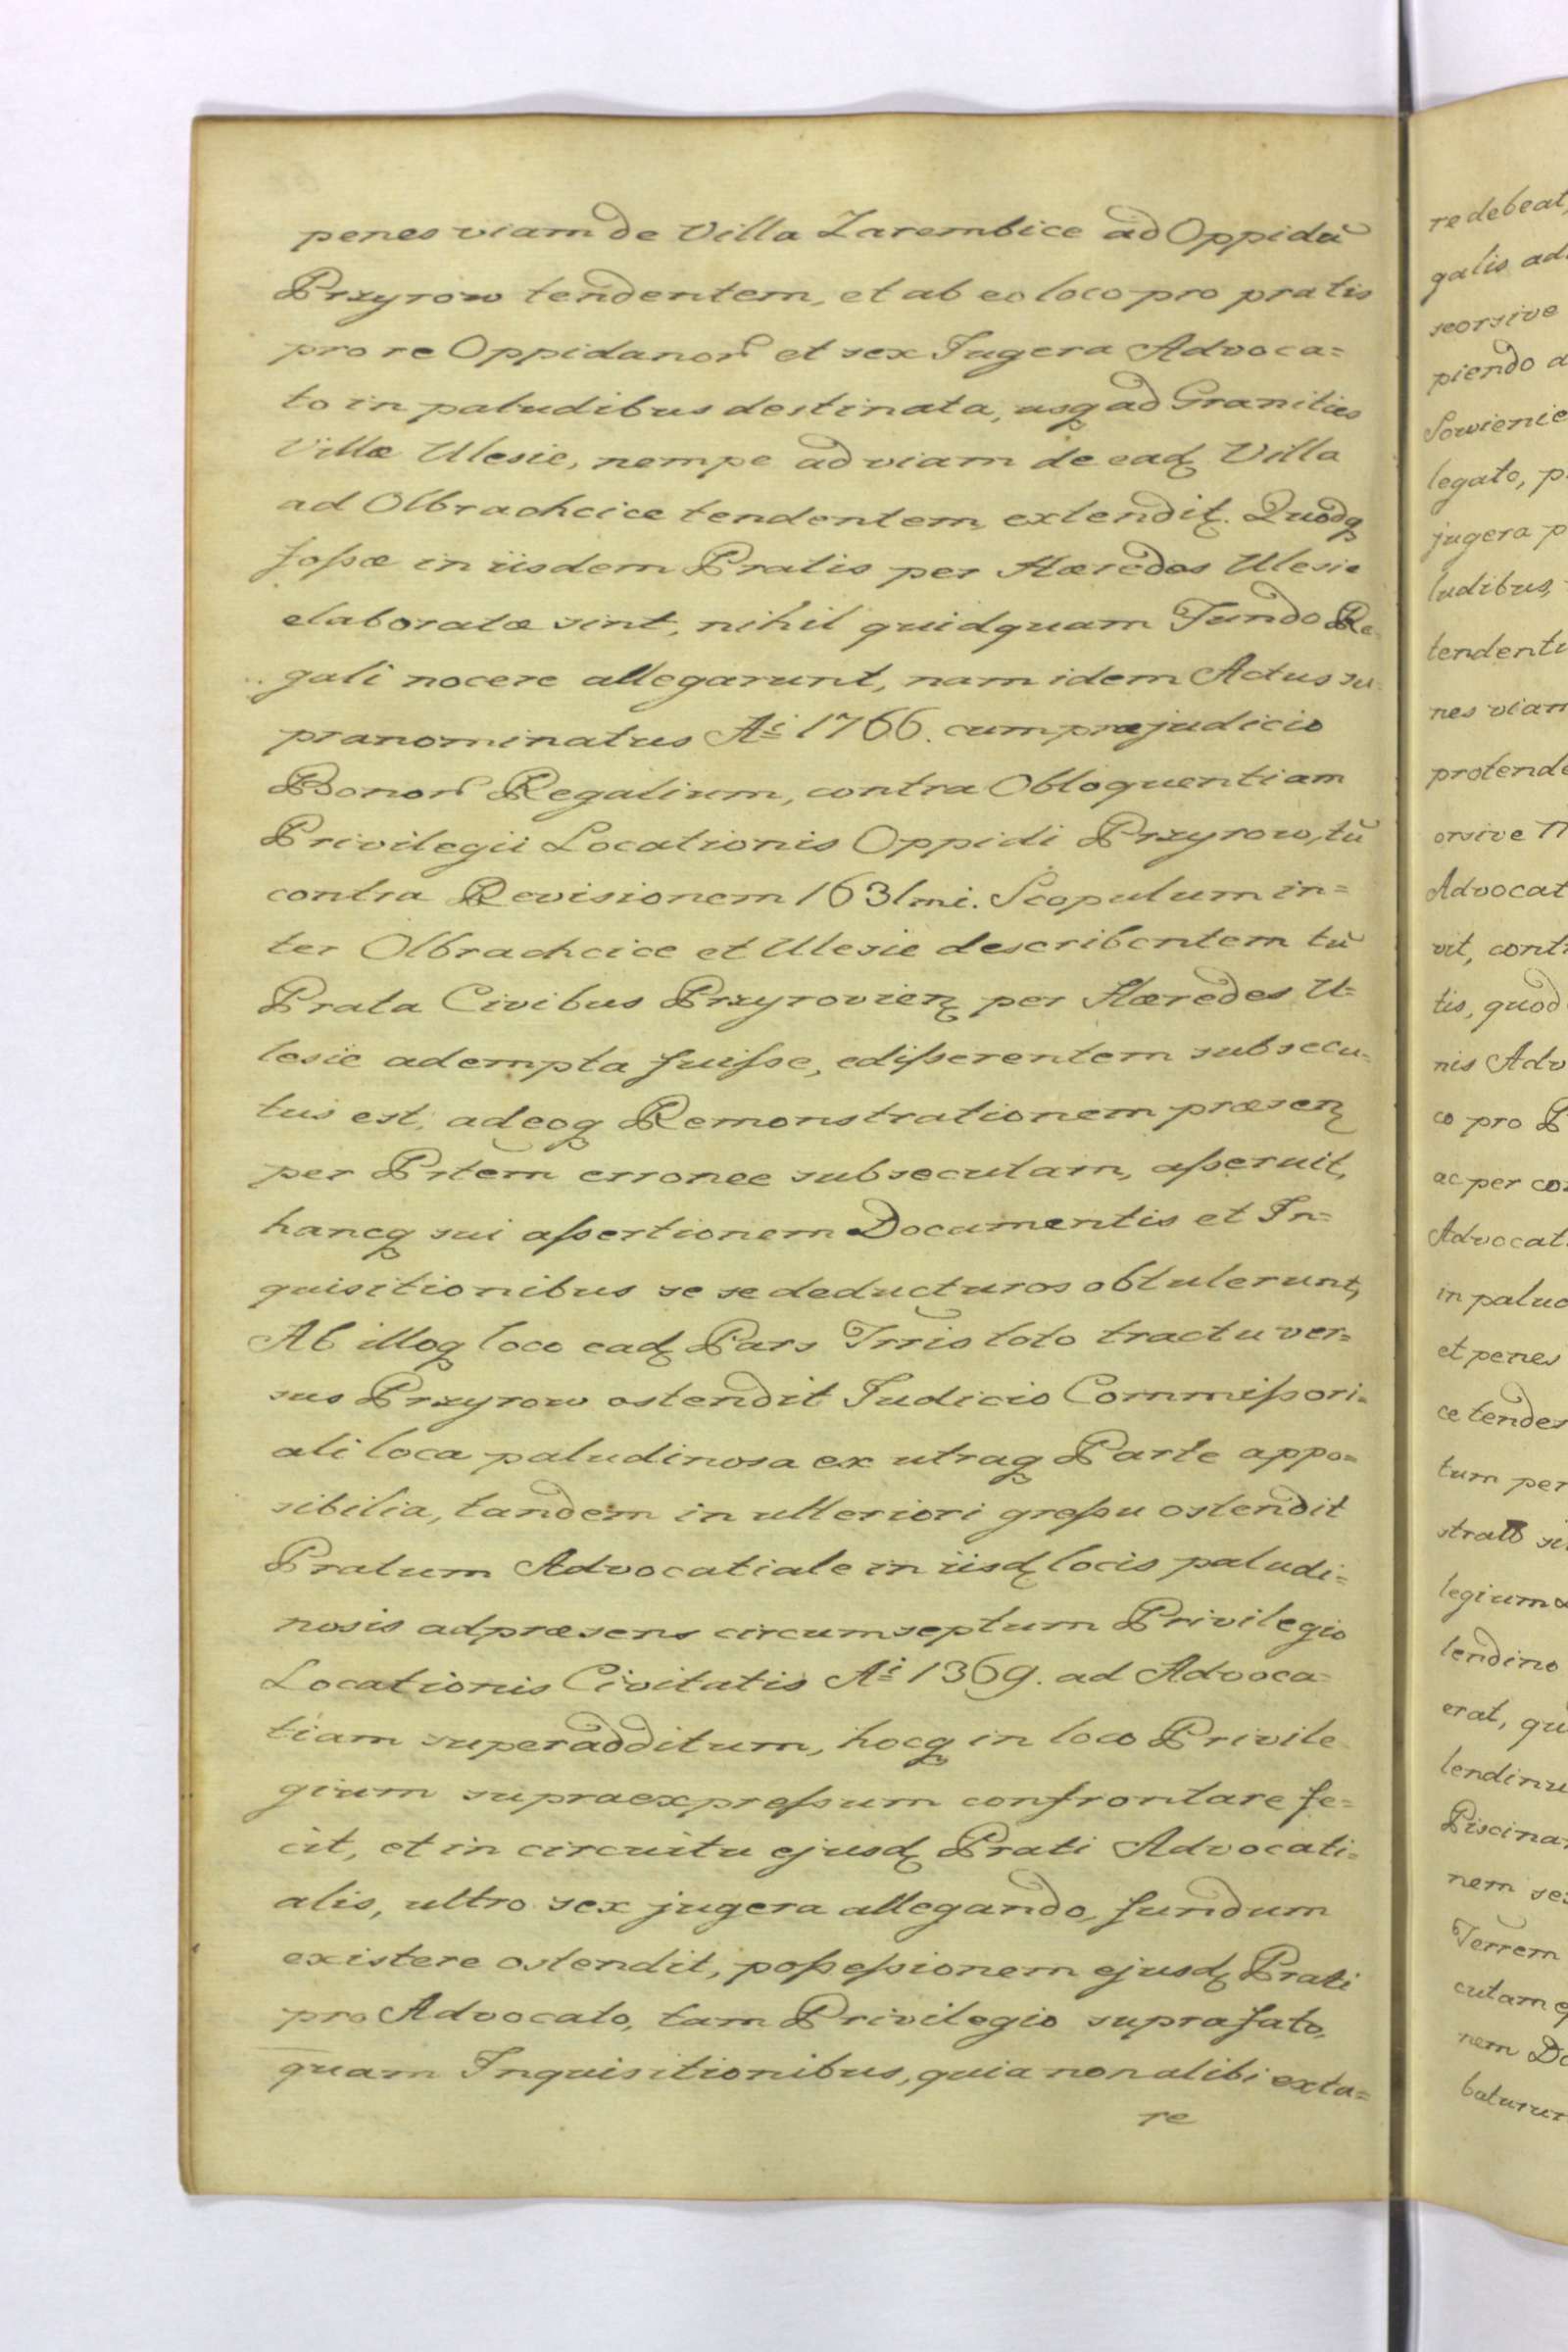 penes viam de Villa Zarembice ad Oppidũ
Przyrow tendentem, et ab eo loco pro pratis
pro re Oppidanor̃ et sex Jugera Advoca=
to in paludibus destinata, usq̨ ad Granities
Villæ Ulesie, nempe ad viam de eadꝫ Villa
ad Olbrachcice tendentem, extenditꝫ. Quodq̨
foſsæ in iisdem Pratis per Hæredes Ulesie
elaboratæ sint, nihil quidquam Fundo Re=
gali nocere allegarunt, nam idem Actus su=
pranominatus Aī 1766. cum præjudicio
Bonor̃ Regalium, contra Obloquentiam
Privilegii Locationis Oppidi Przyrow, tũ
contra Revisionem 1631mi. Scopulum in=
ter Olbrachcice et Ulesie describentem tũ
Prata Civibus Przyrovienꝫ per Hæredes U=
lesie adempta fuiſse, ediſserentem subsecu=
tus est, adeoq̨ Remonstrationem præsenꝫ
per Prtem̃ erronee subsecutam, aſseruit,
hancq̨ sui aſsertionem Documentis et In=
quisitionibus se se deducturos obtulerunt,
Ab illoq̨ loco eadꝫ Pars Trris̃ toto tractu ver=
sus Przyrow ostendit Judicio Commiſsori=
ali loca paludinosa ex utraq̨ Parte appo=
sibilia, tandem in ulteriori greſsu ostendit
Pratum Advocatiale in iisdꝫ locis paludi=
nosis ad præsens circumseptum Privilegio
Locationis Civitatis Aī 1369. ad Advoca=
tiam superadditum, hocq̨ in loco Privile
gium supraexpreſsum confrontare fe=
cit, et in circuitu ejusdꝫ Prati Advocati=
alis, ultro sex jugera allegando, fundum
existere ostendit, poſseſsionem ejusdꝫ Prati
pro Advocato, tam Privilegio suprafato,
quam Inquisitionibus, quia non alibi exta=
re
re debeat,
galis ad
seorsive
piendo a
Sowienie
legato, p
jugera p
ludibus,
tendenti
nes viam
protende
orsive n
Advocat
vit, cont
tis, quod
nis Adv
co pro P
ac per co
Advocat
in palud
et penes
ce tenden
tum per
strato si
legium
lendino
erat, qu
lendinu
Piscina
nem se
Terrem
cutam
nem Do
baturum